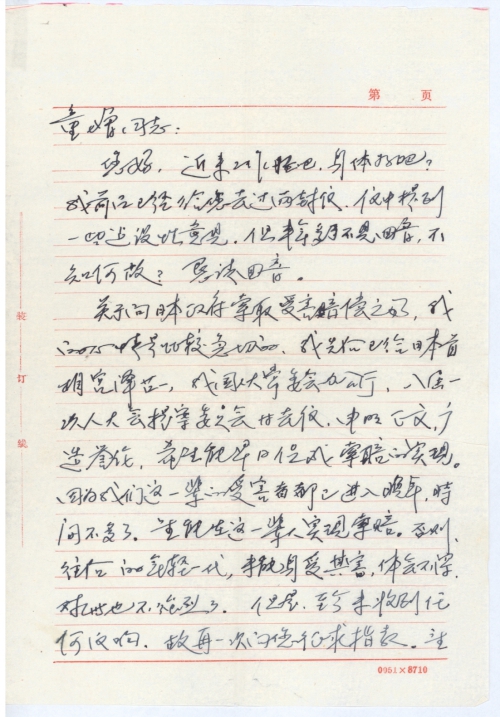 第 页
童增同志：
您好，近来工作忙吧，身体好吧？
我前已经给您去过两封信，信中提到
一些建设性意见，但半年多不见回音，不
知何故？恳请回音。
关于向日本政府索取受害赔偿之事，我
们的心情是比较急切的，我先后已给日本首
相宫泽喜一，我国人大常委会办公厅，八届一
次人大会提案委员会发去信，申明正义，广
造舆论，希望能早日促成索赔的实现。
因为我们这一辈的受害者都已进入晚年，时
间不多了，望能在这一辈人实现索赔。否则，
往后的年轻一代，未能身受其害，体会不深，
对此也不能到了。但是，至今未收到任
何反响，故再一次向您征求指教。
装
订
线
0051×8710